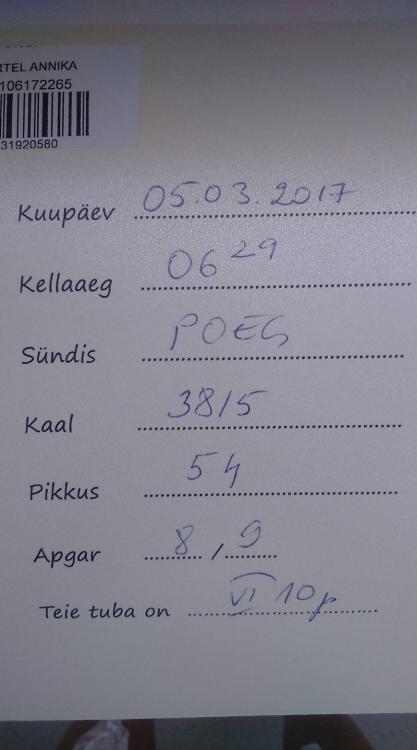 RTEL ANNIKA
106172265
31920580
Kuupäev 05.03.2017
Kellaaeg 06 29
Sündis POEG
Kaal 3815
Pikkus 54
Apgar 8 / 9
Teie tuba on VI 10p